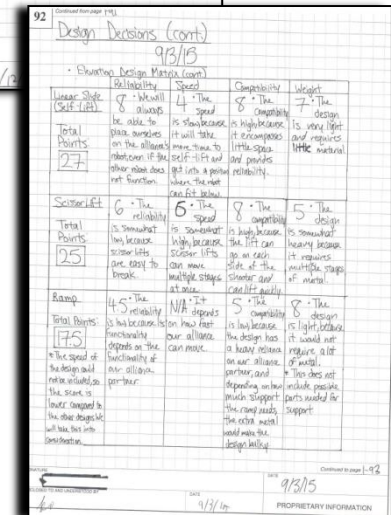 92
Continued from page
Design Decisions (cont)
9/3/15
• Elevation Design Matrix (cont)
Reliability Speed Compatibility Weight
Linear Slide
(Self Lift)
Total
Points
27
8 • We will
always
be able to
place ourselves
on the alliance's
robot, even if the
other robot does
not function.
4 • The
speed
is slow, because
it will take
more time to
self-lift and
get into a position
where the robot
can fit below.
8 • The
compatibility
is high, because
it encompasses
little space
and provides
reliability.
7 • The
design
is very light
and requires
little material.
Scissor Lift
Total
Points
25
6 • The
reliability
is somewhat
low, because
scissor lifts
are easy to
break.
6 • The
speed
is somewhat
high, because
scissor lifts
can move
multiple stages
at once.
8 • The
compatibility
is high, because
the lift can
go on each
side of the
shooter and
can lift quickly.
5 • The
design
is somewhat
heavy because
it requires
multiple stages
of metal.
Ramp
Total Points:
17.5
* The speed of
the design could
not be included, so
the score is
lower compared to
the other designs. We
will take this into
consideration.
4.5 • The
reliability
is low because its
functionality
depends on the
functionality of
our alliance
partner.
N/A • It
depends
on how fast
our alliance
can move.
5 • The
compatibility
is low, because
the design has
a heavy reliance
on our alliance
partner, and
depending on how
much support
the ramp needs,
the extra metal
would make the
design bulky.
8 • The
design
is light, because
it would not
require a lot
of metal.
* This does not
include possible
parts needed for
support
Continued to page 93
DATE
9/3/15
DATE
PROPRIETARY INFORMATION